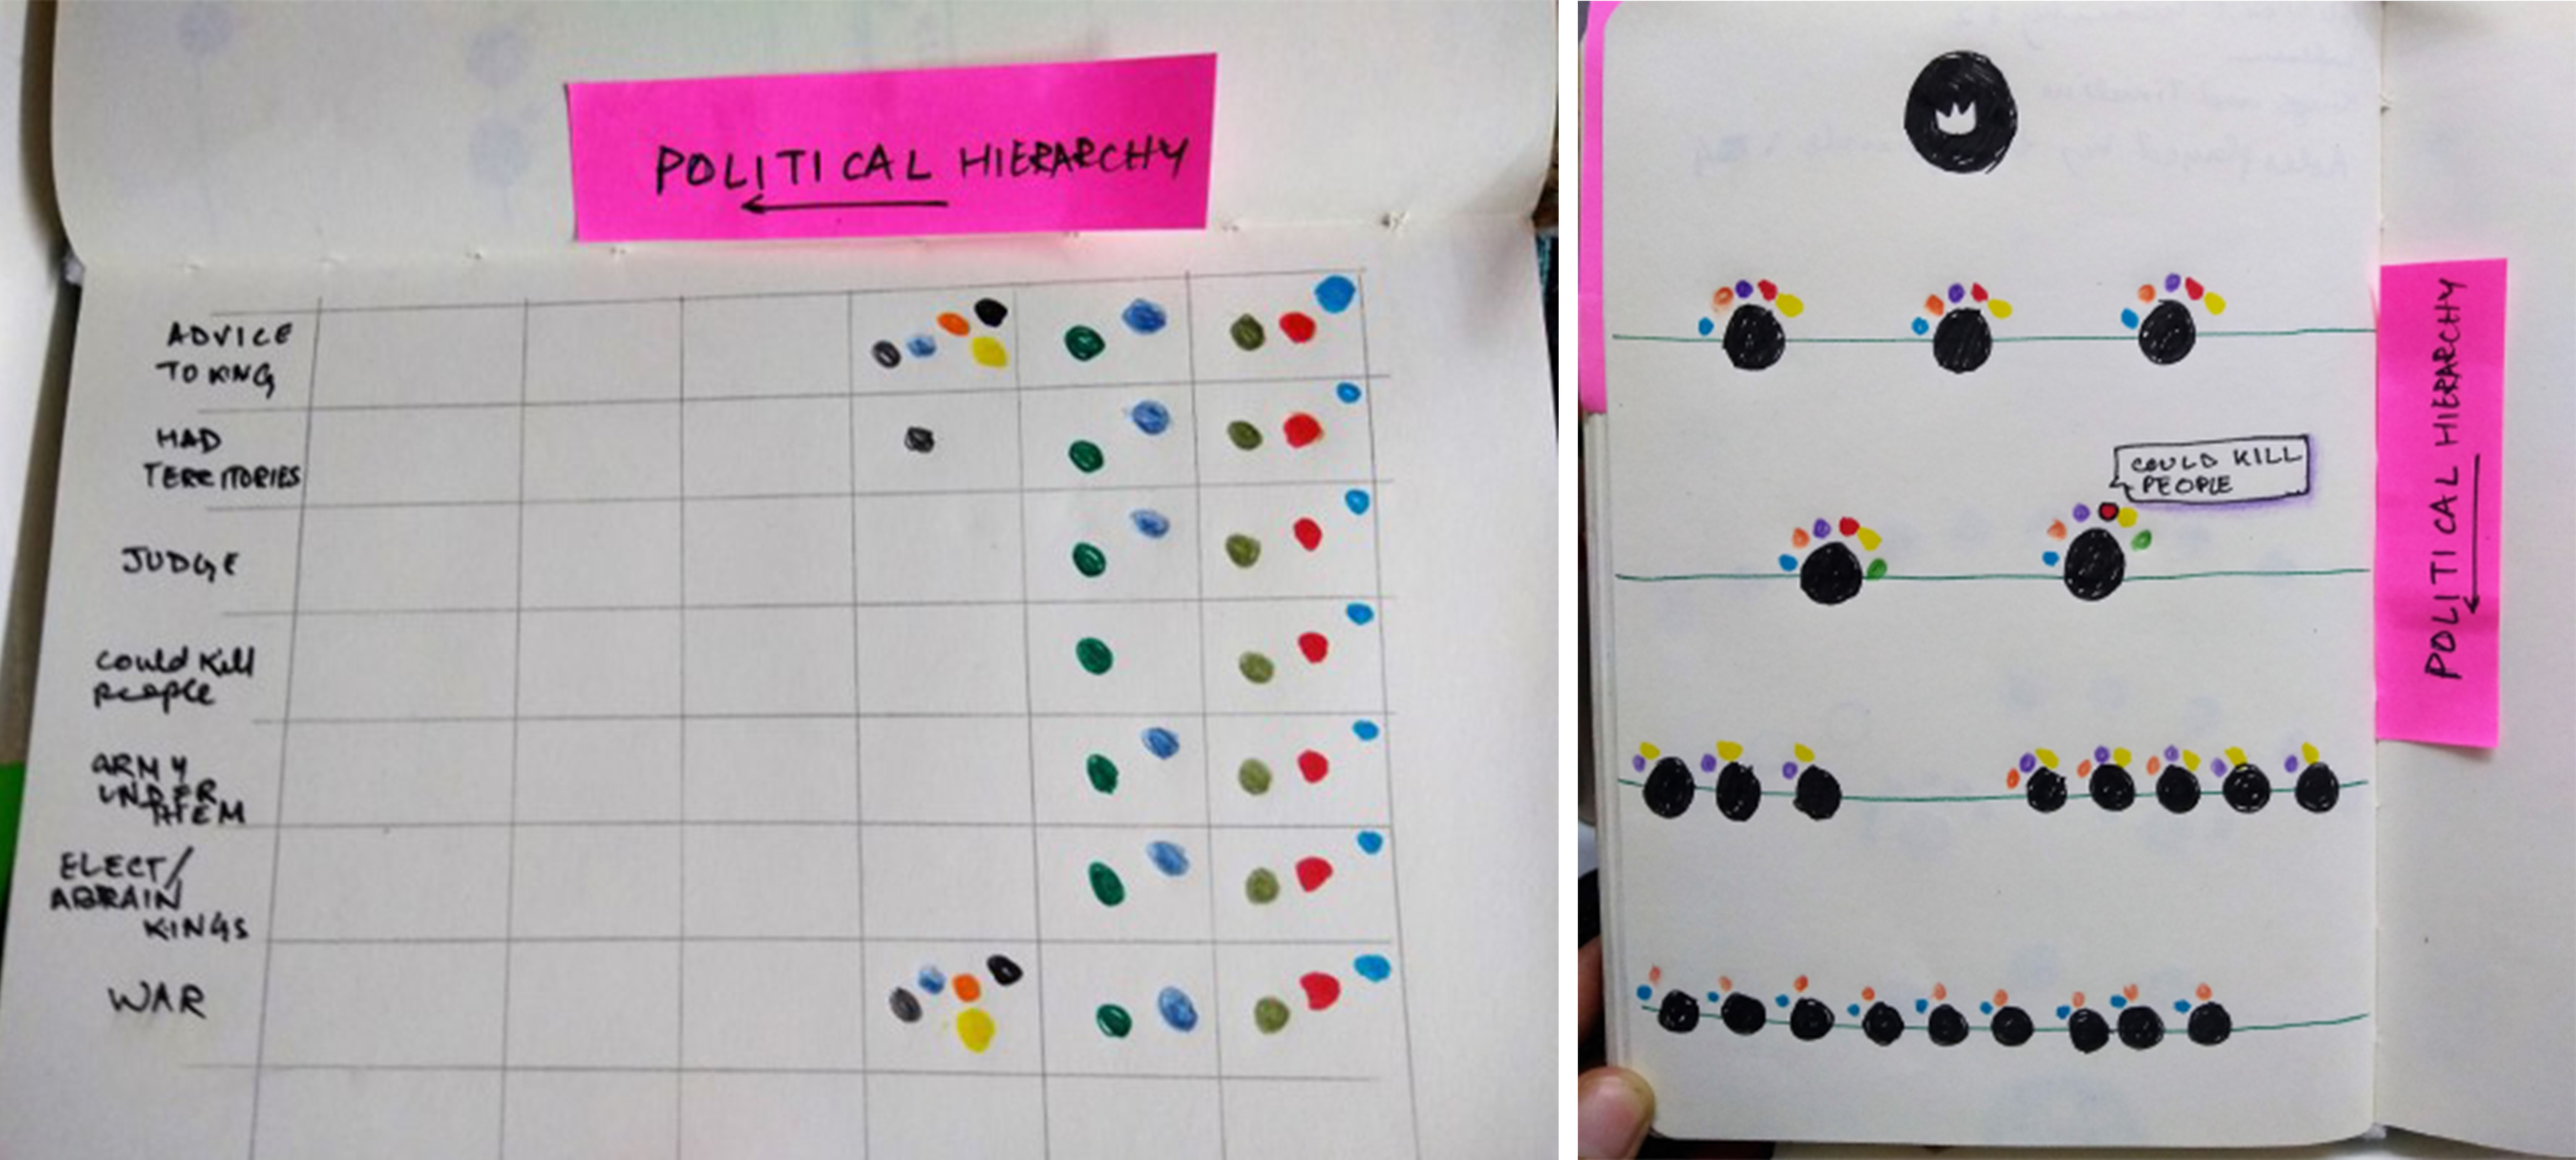 POLITICAL HIERARCHY
ADVICE
TO KING
HAD
TERRITORIES
JUDGE
Could Kill
people
ARMY
UNDER
THEM
ELECT/
ABRAIN
KINGS
WAR
COULD KILL
PEOPLE
POLITICAL HIERARCHY